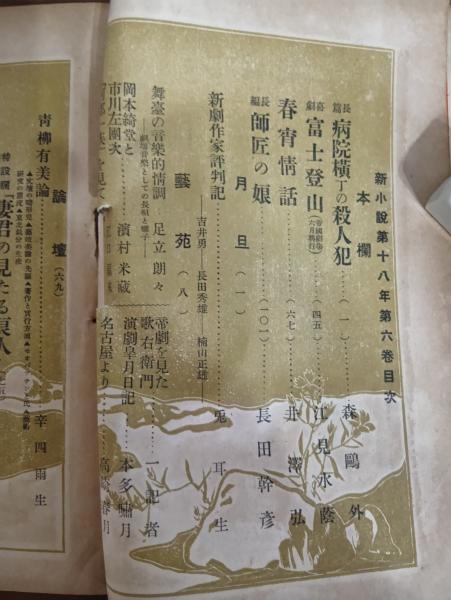 新小說第十八年第六卷目次
本欄
長篇 病院橫丁の殺人犯………(一)…森鷗外
喜劇 富士登山(帝國劇場六月興行)………(四五)…江見水蔭
春宵情話………(六七)…井澤弘
長編 師匠の娘………(一〇一)…長田幹彥
月旦(一)
新劇作家評判記………兎耳生
―吉井勇―長田秀雄―楠山正雄―
藝苑(八)
舞臺の音樂的情調………足立朗々
―劇場音樂としての長唄と囃子―
岡本綺堂と
市川左團次………濱村米藏
帝劇を見た
歌右衞門………一記者
演劇皐月日記………本多嘯月
名古屋より………高
論壇(六九)
靑柳有美論………辛四雨生
特設欄『妻君の見たる良人